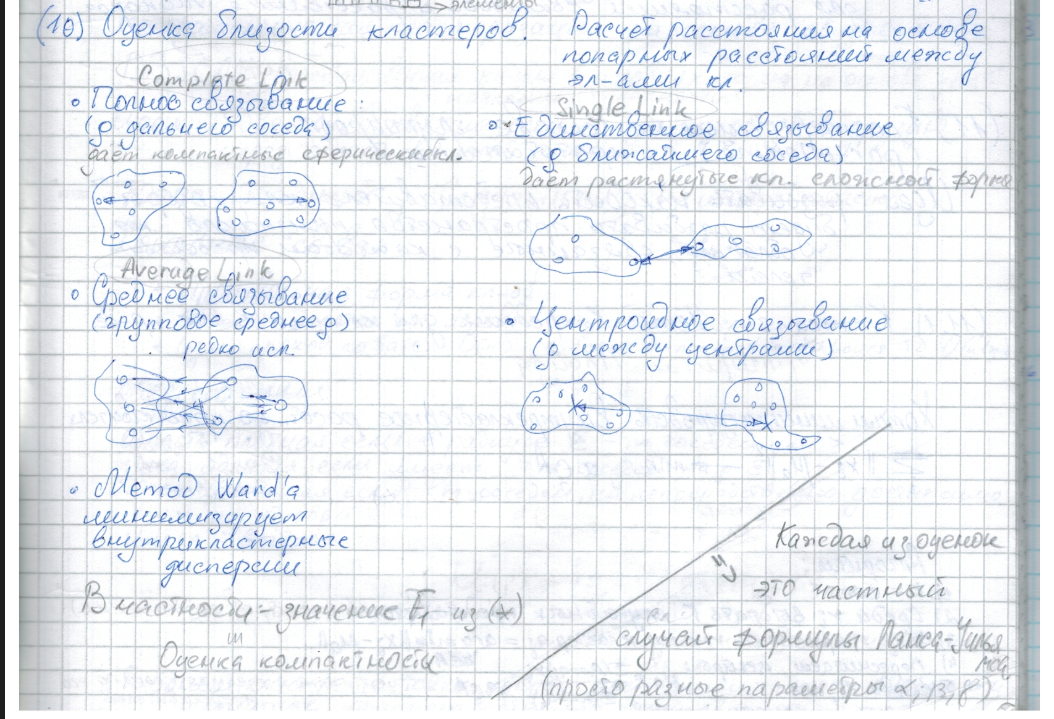 элементы
(10) Оценка близости кластеров.
Расчёт расстояния на основе
попарных расстояний между
эл-ами кл.
Complete Link
• Полное связывание:
(ρ дальнего соседа)
даёт компактные сферические кл.
Single Link
• Единственное связывание
(ρ ближайшего соседа)
даёт растянутые кл. сложной форм
Average Link
• Среднее связывание
(групповое среднее ρ)
редко исп.
• Центроидное связывание
(ρ между центрами)
• Метод Ward'a
минимизирует
внутрикластерные
дисперсии
В частности - значение F₁ из (*)
Оценка компактности
Каждая из оценок
это частный
случай формулы Ланса-Уилья
мса
(просто разные параметры α, β, γ)